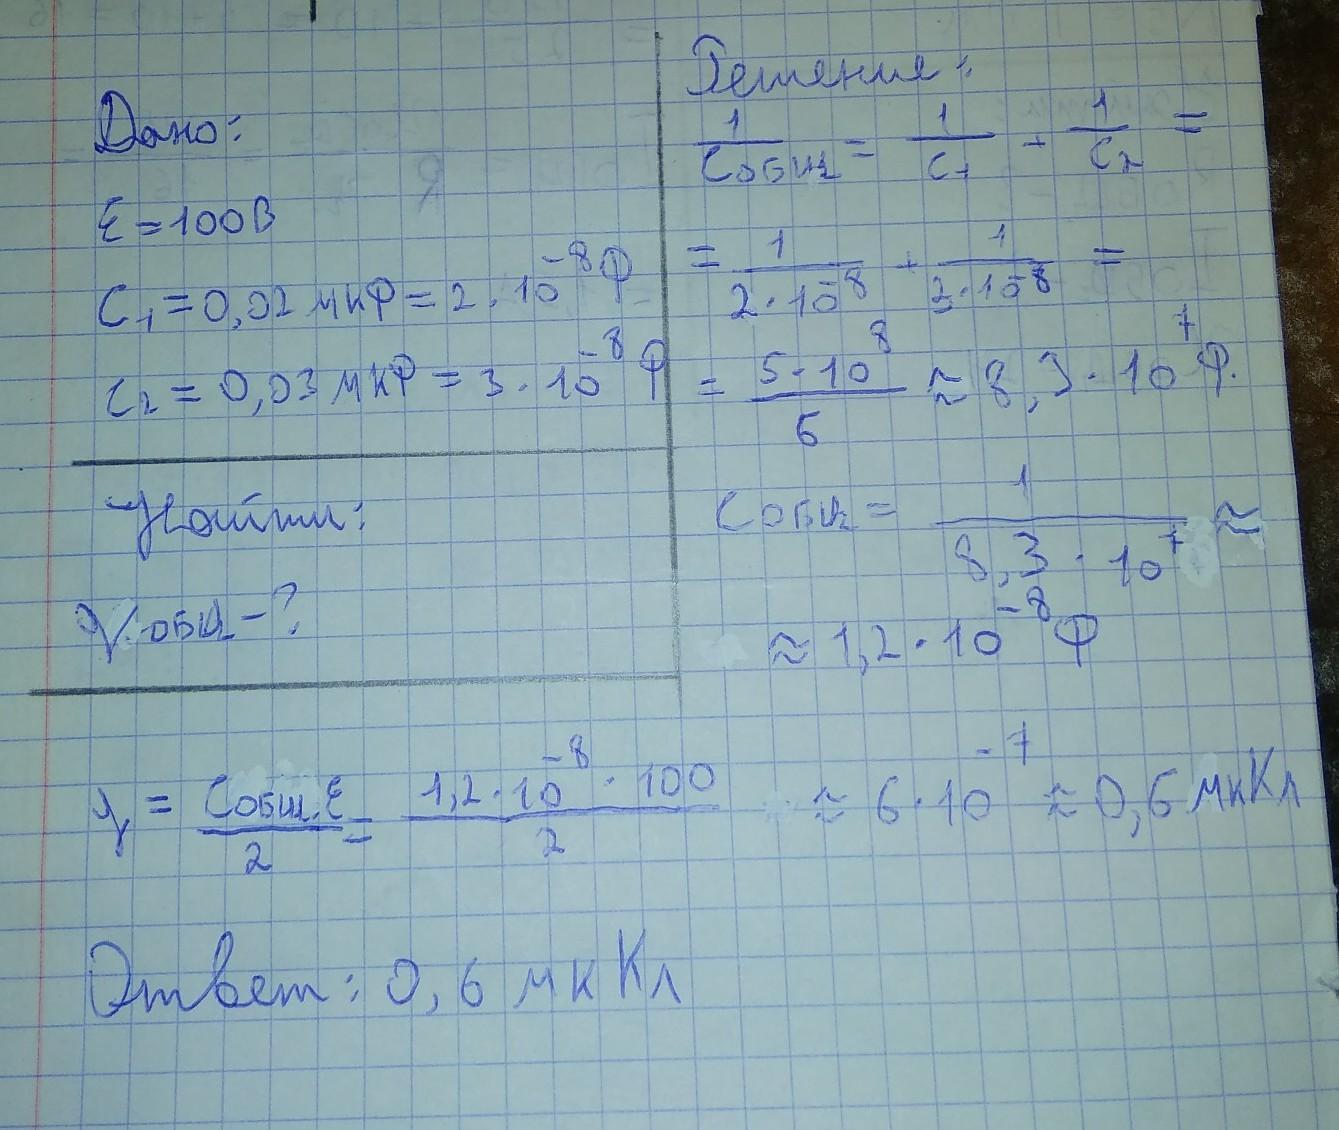 Дано:
Ɛ = 100В
C₁ = 0,02 мкФ = 2 · 10⁻⁸ Ф
C₂ = 0,03 мкФ = 3 · 10⁻⁸ Ф
Найти:
q общ - ?
Решение:
1/Cобщ = 1/C₁ + 1/C₂ =
= 1/(2 · 10⁻⁸) + 1/(3 · 10⁻⁸) =
= (5 · 10⁸)/6 ≈ 8,3 · 10⁷ Ф.
Cобщ = 1/(8,3 · 10⁷) ≈
≈ 1,2 · 10⁻⁸ Ф
q = (Cобщ. Ɛ)/2 = (1,2 · 10⁻⁸ · 100)/2 ≈ 6 · 10⁻⁷ ≈ 0,6 мкКл
Ответ: 0,6 мкКл